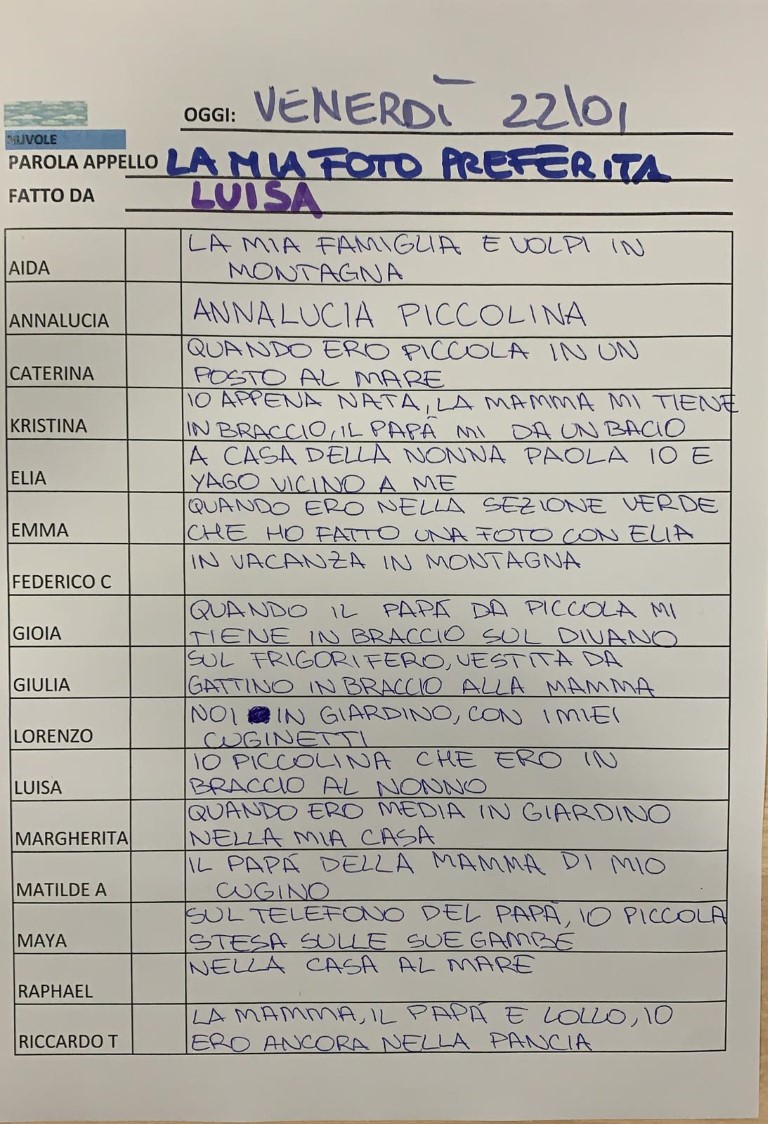 OGGI: VENERDÌ 22\01
NUVOLE
PAROLA APPELLO LA MIA FOTO PREFERITA
FATTO DA LUISA
AIDA LA MIA FAMIGLIA E VOLPI IN
MONTAGNA
ANNALUCIA ANNALUCIA PICCOLINA
CATERINA QUANDO ERO PICCOLA IN UN
POSTO AL MARE
KRISTINA IO APPENA NATA, LA MAMMA MI TIENE
IN BRACCIO, IL PAPÁ MI DA UN BACIO
ELIA A CASA DELLA NONNA PAOLA IO E
YAGO VICINO A ME
EMMA QUANDO ERO NELLA SEZIONE VERDE
CHE HO FATTO UNA FOTO CON ELIA
FEDERICO C IN VACANZA IN MONTAGNA
GIOIA QUANDO IL PAPÁ DA PICCOLA MI
TIENE IN BRACCIO SUL DIVANO
GIULIA SUL FRIGORIFERO, VESTITA DA
GATTINO IN BRACCIO ALLA MAMMA
LORENZO NOI IN GIARDINO, CON I MIEI
CUGINETTI
LUISA IO PICCOLINA CHE ERO IN
BRACCIO AL NONNO
MARGHERITA QUANDO ERO MEDIA IN GIARDINO
NELLA MIA CASA
MATILDE A IL PAPÁ DELLA MAMMA DI MIO
CUGINO
MAYA SUL TELEFONO DEL PAPÁ, IO PICCOLA
STESA SULLE SUE GAMBE
RAPHAEL NELLA CASA AL MARE
RICCARDO T LA MAMMA, IL PAPÁ E LOLLO, IO
ERO ANCORA NELLA PANCIA